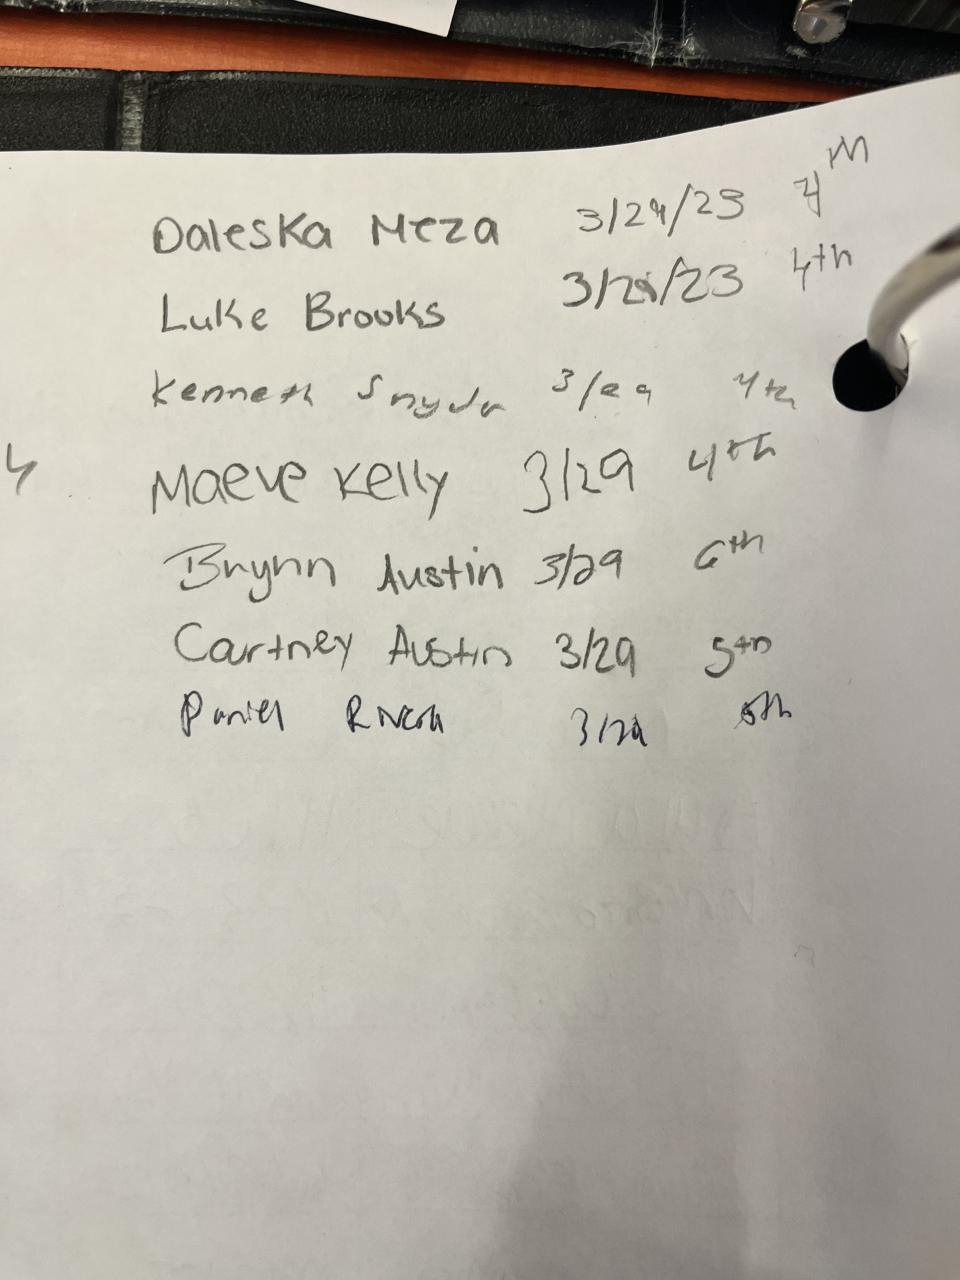 Daleska Meza 3/29/23 4th
Luke Brooks 3/29/23 4th
Kenneth Snyder 3/29 4th
4
Maeve Kelly 3/29 4th
Brynn Austin 3/29 6th
Cartney Austin 3/29 5th
Daniel Rivera 3/29 5th